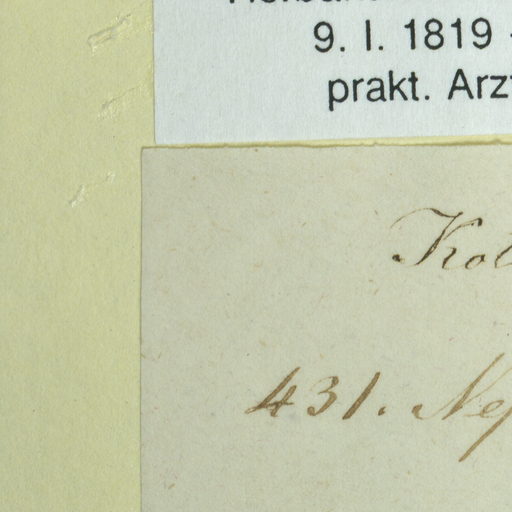 9. I. 1819
prakt. Arzt
Kot
431. Nep